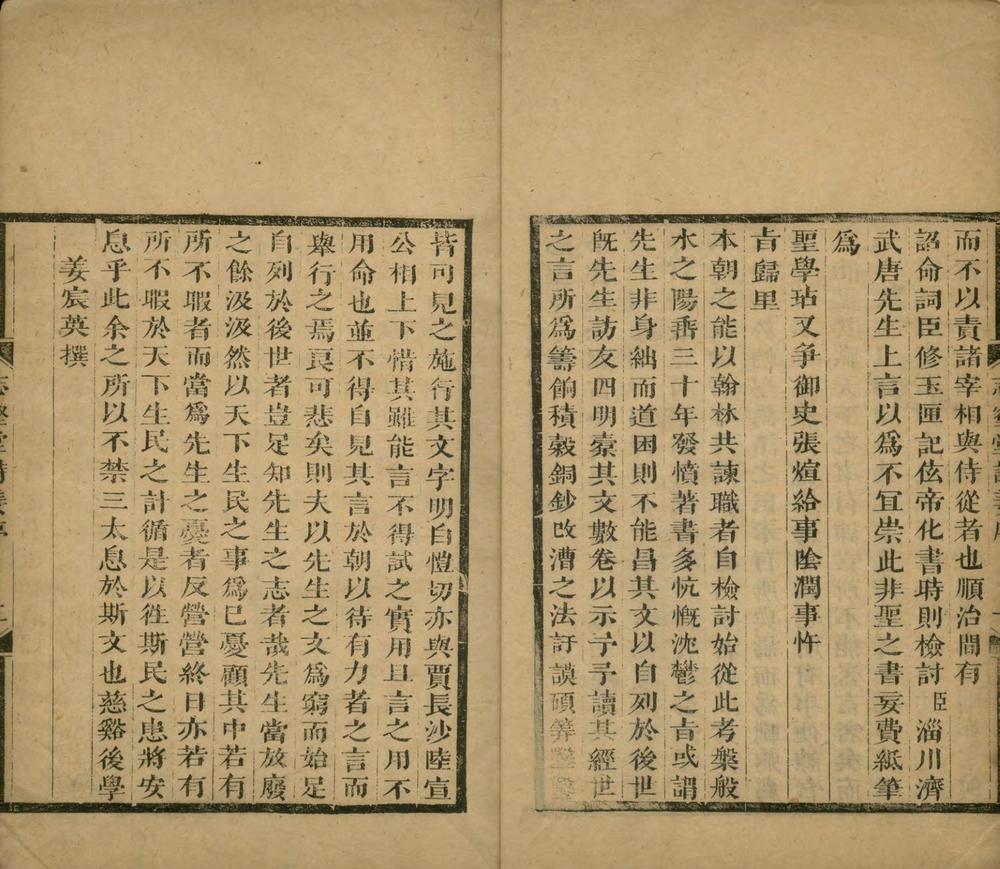 而不以責諸宰相與侍從者也順治間有
詔命詞臣修玉匣記伭帝化書時則檢討臣淄川濟
武唐先生上言以爲不宜崇此非聖之書妄費紙筆
爲
聖學玷又爭御史張煊給事陰潤事忤
旨歸里
本朝之能以翰林共諫職者自檢討始從此考槃般
水之陽垂三十年發憤著書多忼慨沈鬱之旨或謂
先生非身絀而道困則不能昌其文以自列於後世
旣先生訪友四明橐其文數卷以示予予讀其經世
之言所爲籌餉積穀銅鈔改漕之法訏謨碩筭鑿鑿
皆可見之施行其文字明白愷切亦與賈長沙陸宣
公相上下惜其雖能言不得試之實用且言之用不
用命也並不得自見其言於朝以待有力者之言而
舉行之焉良可悲矣則夫以先生之文爲窮而始足
自列於後世者豈足知先生之志者哉先生當放廢
之餘汲汲然以天下生民之事爲已憂顧其中若有
所不暇者而當爲先生之憂者反營營終日亦若有
所不暇於天下生民之計循是以徃斯民之患將安
息乎此余之所以不禁三太息於斯文也慈谿後學
姜宸英撰